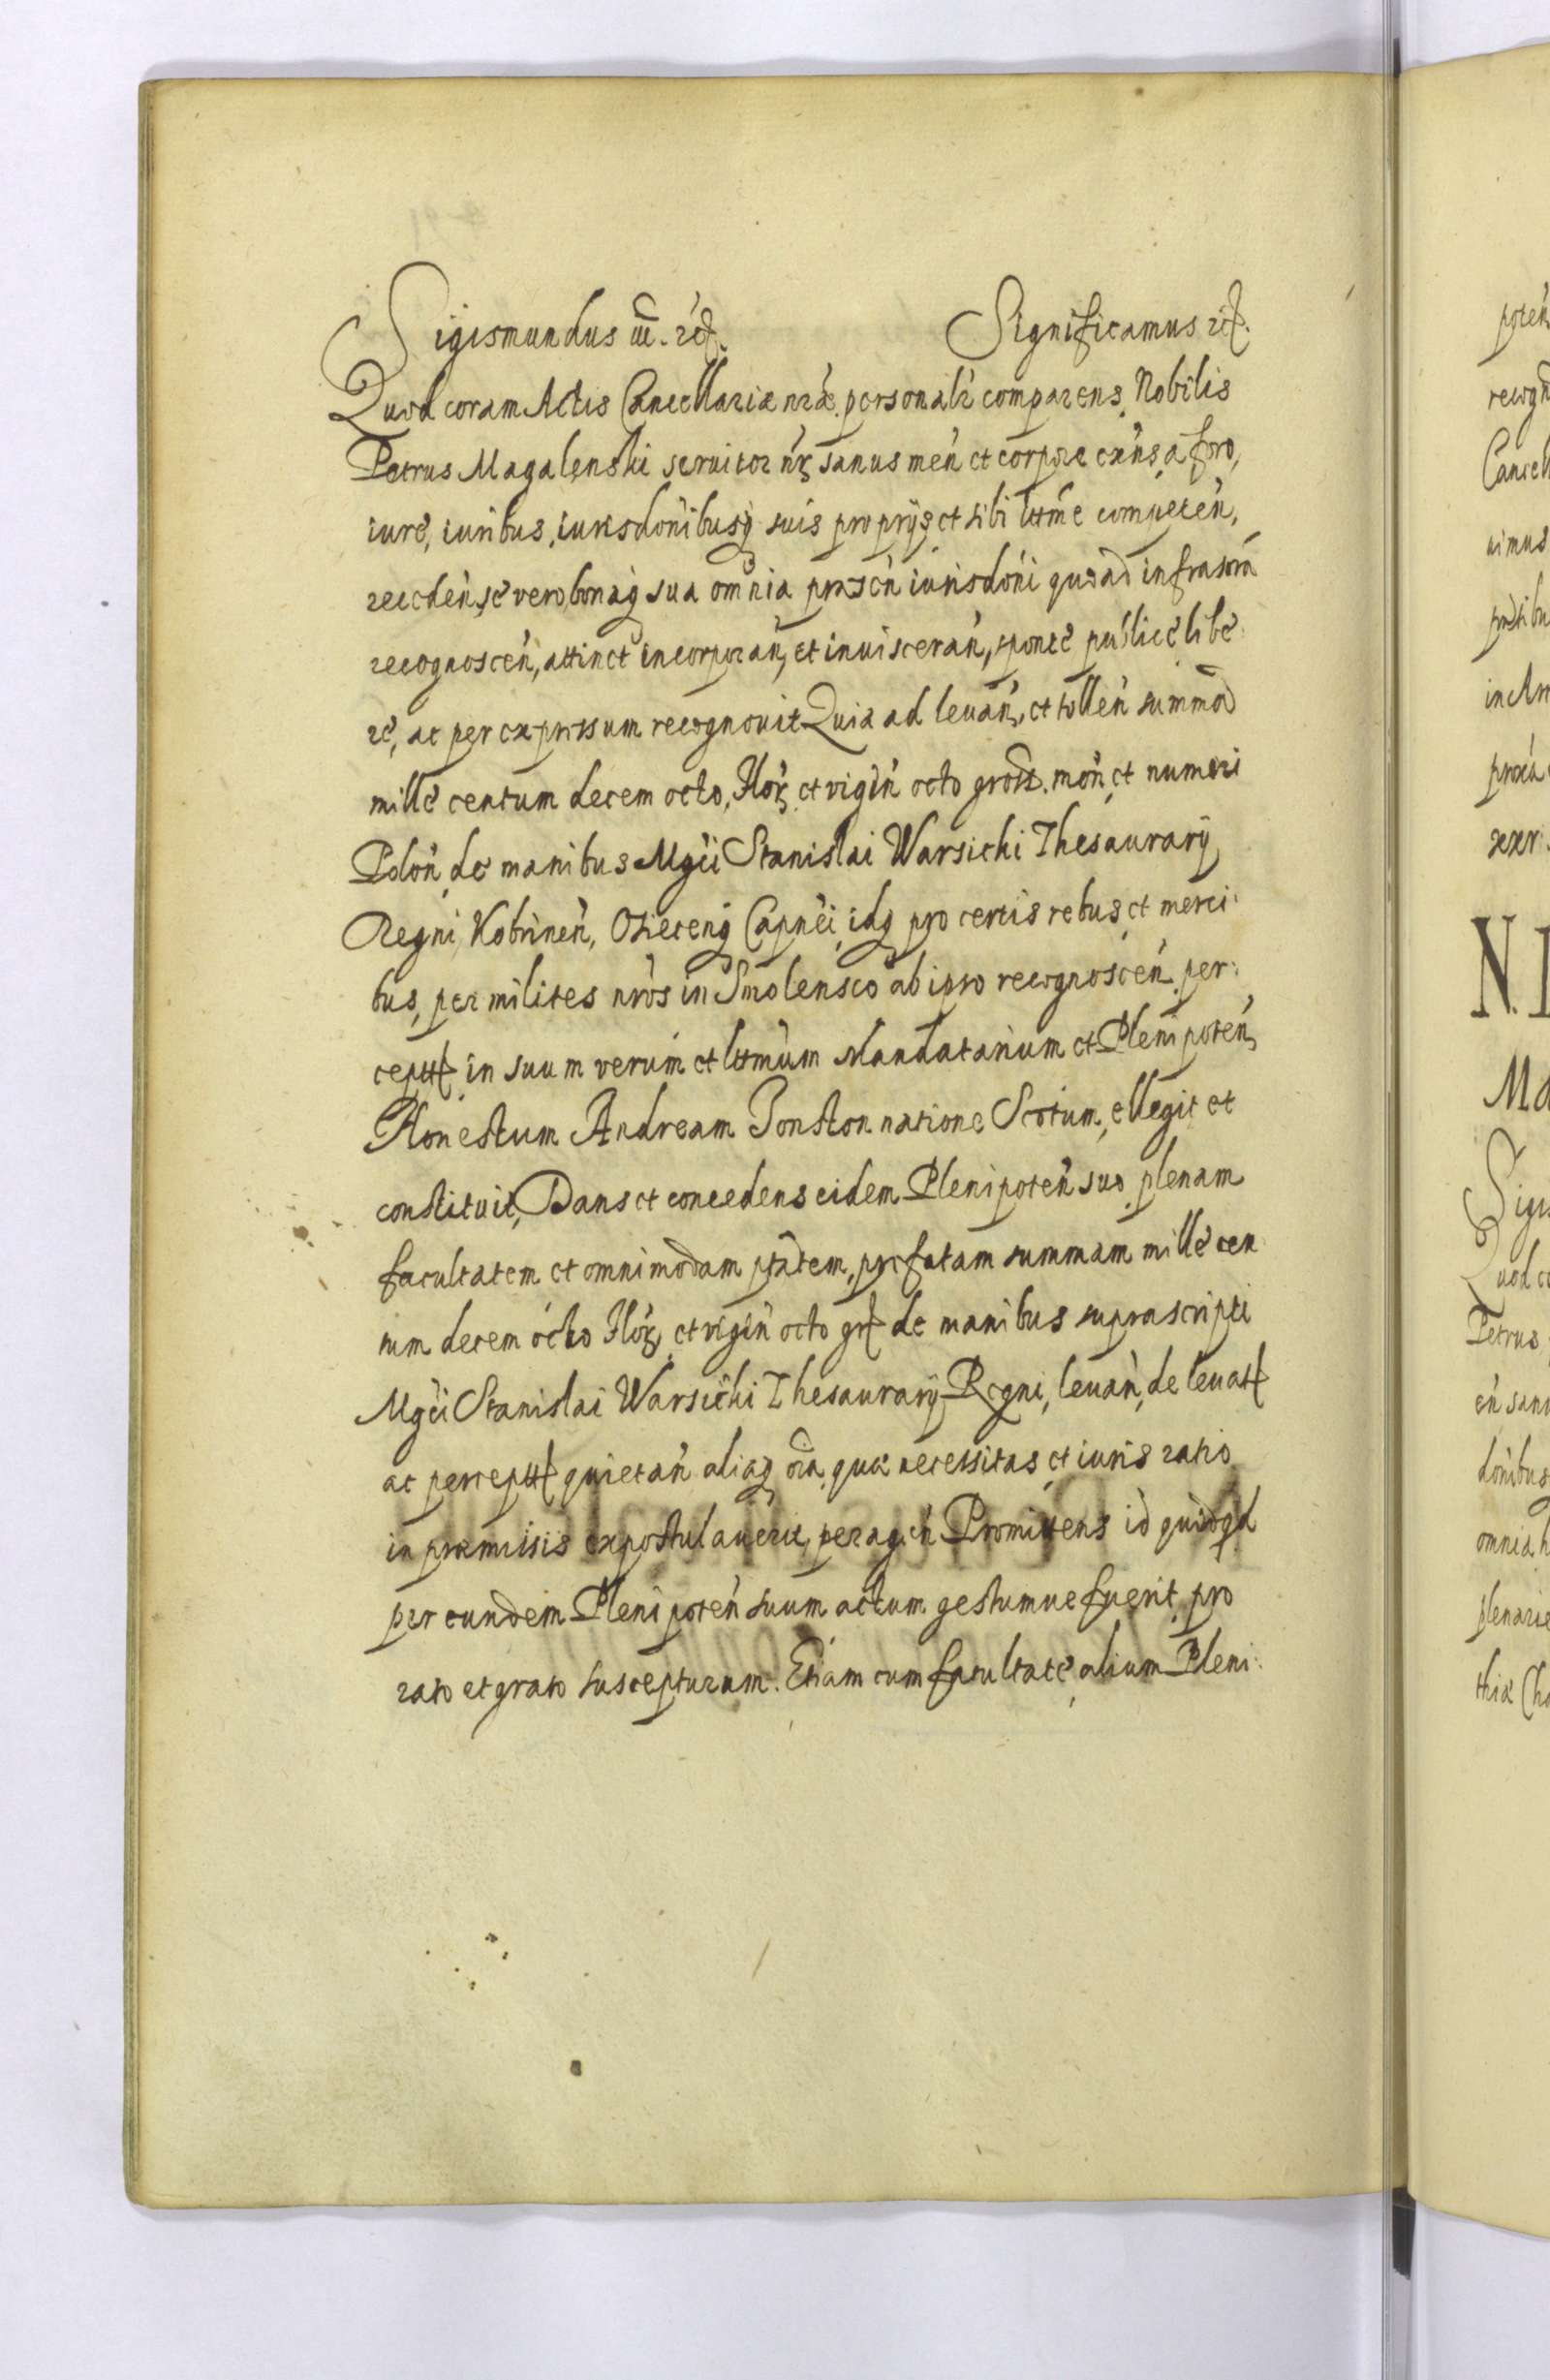 Sigismundus III. etc. Significamus etc.
Quod coram Actis Cancellariæ nræ personalr comparens Nobilis
Petrus Magalenski seruitor nr sanus men et corpore exns, a foro,
iure, iuribus, iurisdonibusq suis proprijs et sibi lttme competen,
receden, se vero bonaq sua omnia præsen iurisdoni quoad infrascrn
recognoscen, attinet incorporan, et inuisceran, sponte publice libe
re, ac per expressum recognouit Quia ad leuan, et tollen summa
mille centum decem octo, flor et vigin octo gross. mon et numeri
Polon de manibus Mgci Stanislai Warsichi Thesaurarij
Regni, Kobrinen, Osiecenq Capnei, idq pro certis rebus et merci
bus, per milites nros in Smolensco ab ipso recognoscen per
ceptt in suum verum et lttmum Mandatarium et Plenipoten
Honestum Andream Jonston natione Scotum, ellegit et
constituit, Dans et concedens eidem Plenipoten suo plenam
facultatem et omnimodam ptatem, præfatam summam mille cen
tum decem octo flor, et vigin octo gr de manibus suprascripti
Mgci Stanislai Warsichi Thesaurarij Regni, leuan, de leuatt
ac perceptt quietan aliaq oia, quæ necessitas et iuris ratio
in præmissis expostulauerit, peragen Promittens id quidqd
per eundem Plenipoten suum actum gestumue fuerit, pro
rato et grato suscepturum. Etiam cum facultate, alium Pleni
poten
recogn
Cancell
uimus
in Arc
N. I
Ma
Sigis
Quod co
Petrus
en san
donibus
omnia h
plenarie
thiæ Cha